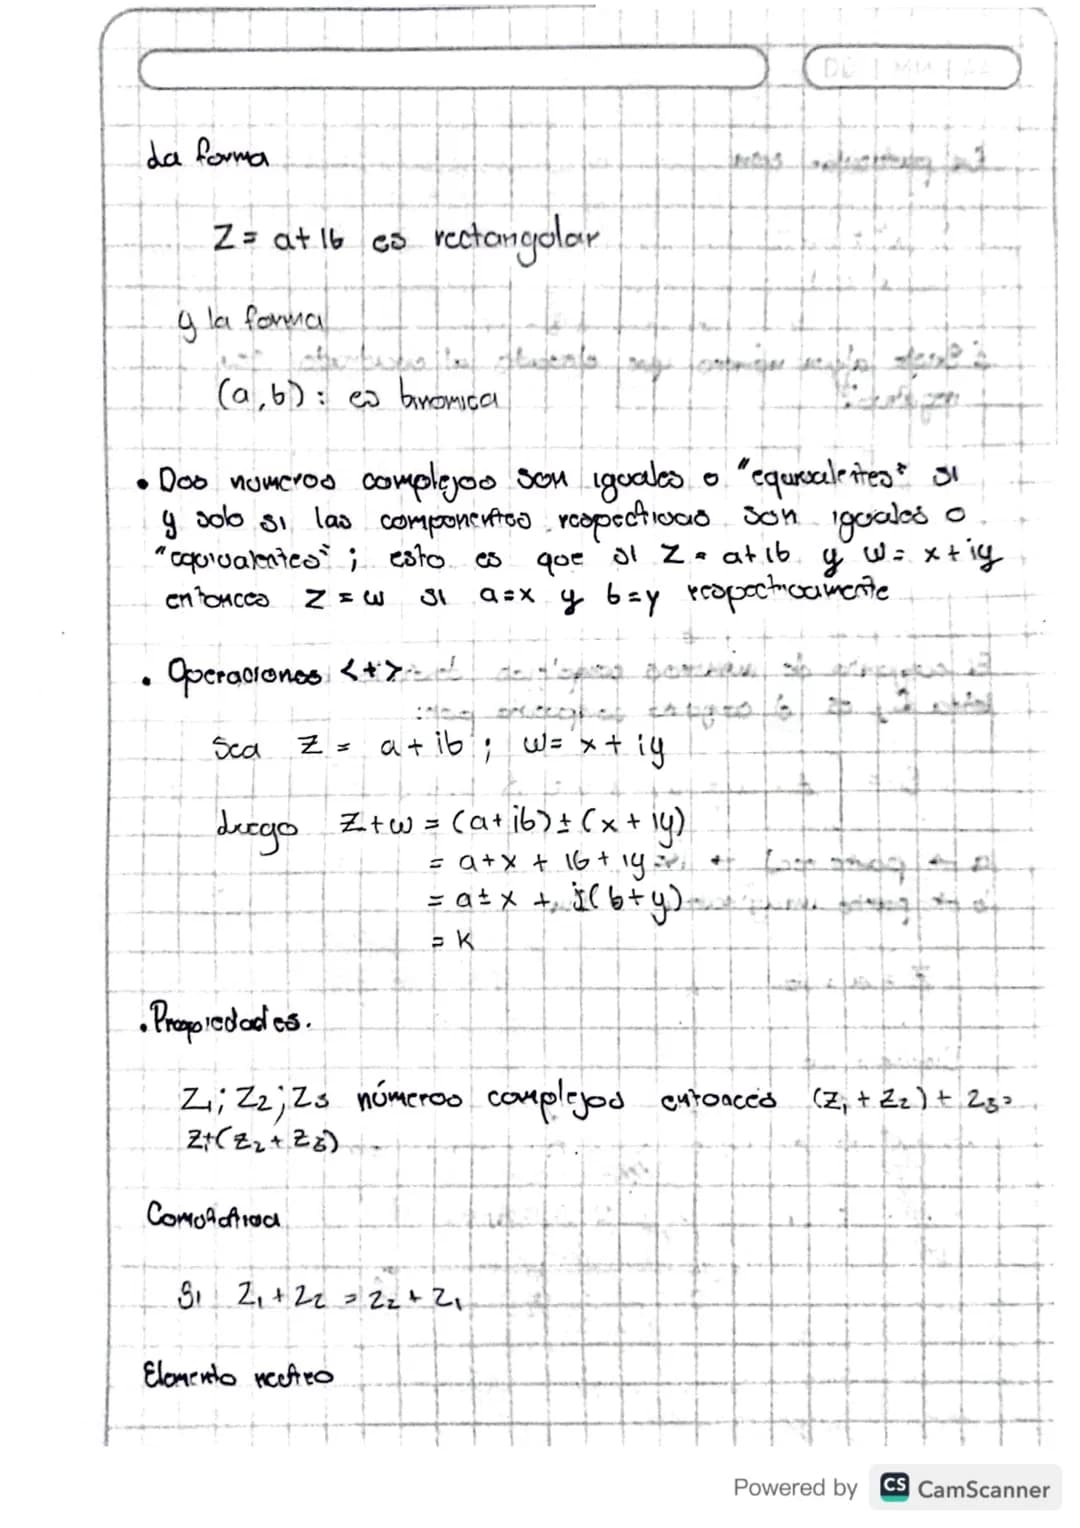 La forma
Z = a+ib es rectangular
y la forma
(a,b): es binomica
• Dos numeros complejos son iguales o "equivalentes" si
y solo si las componentes respectivas son iguales o
"equivalentes"; esto es que si Z = a+ib y w = x+iy
entonces Z = w si a=x y b=y respectivamente
• Operaciones <+>
Sea Z = a+ib; w= x+iy
Luego Z+w = (a+ib)±(x+iy)
= a+x + ib+iy
= a±x + i(b+y)
= K
• Propiedades.
Z₁; Z₂; Z₃ números complejos entonces (Z₁+Z₂)+Z₃=
Z+(Z₂+Z₃)
Conmutativa
Si Z₁+Z₂ = Z₂+Z₁
Elemento neutro
Powered by CS CamScanner